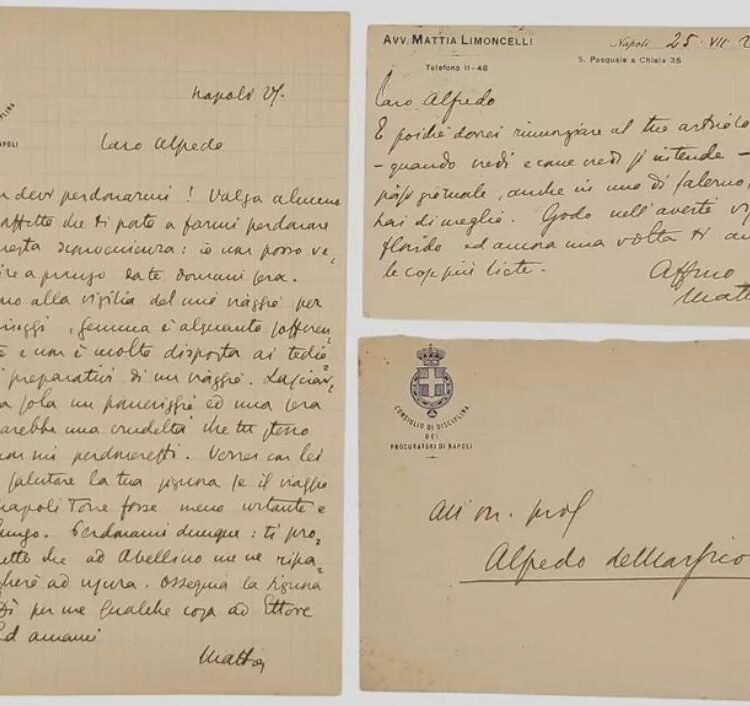 NAPOLI
Napoli 27.
Caro Alfredo
devi perdonarmi! Valga almeno
affetto che ti porto a farmi perdonare
questa : io non posso ve-
nire a pranzo da te domani sera.
alla vigilia del mio viaggio per
, Gemma è alquanto sofferen-
te e non è molto disposta ai tedio-
si preparativi di un viaggio. Lasciar-
la sola un pomeriggio ed una sera
sarebbe una crudeltà che tu stesso
non mi perdoneresti. Verrei con lei
salutare la tua signora se il viaggio
Napoli Torre fosse meno urtante e
lungo. Perdonami dunque: ti pro-
metto che ad Avellino me ne ripa-
gherò ad usura. Ossequia la signora
Dì per me qualche cosa ad Ettore
Ed amami
Mattia
AVV. MATTIA LIMONCELLI
Napoli 25 · VII
Telefono 11-48
S. Pasquale a Chiaia 35
Caro Alfredo
E poiché dovrei rinunziare al tuo articolo
- quando vedi e come vedi s'intende -
, anche in uno di Salerno,
hai di meglio. Godo nell'averti
florido ed ancora una volta ti
le cose più liete.
Affmo
CONSIGLIO DI DISCIPLINA
DEI
PROCURATORI DI NAPOLI
All'on. prof
Alfredo de Marsico